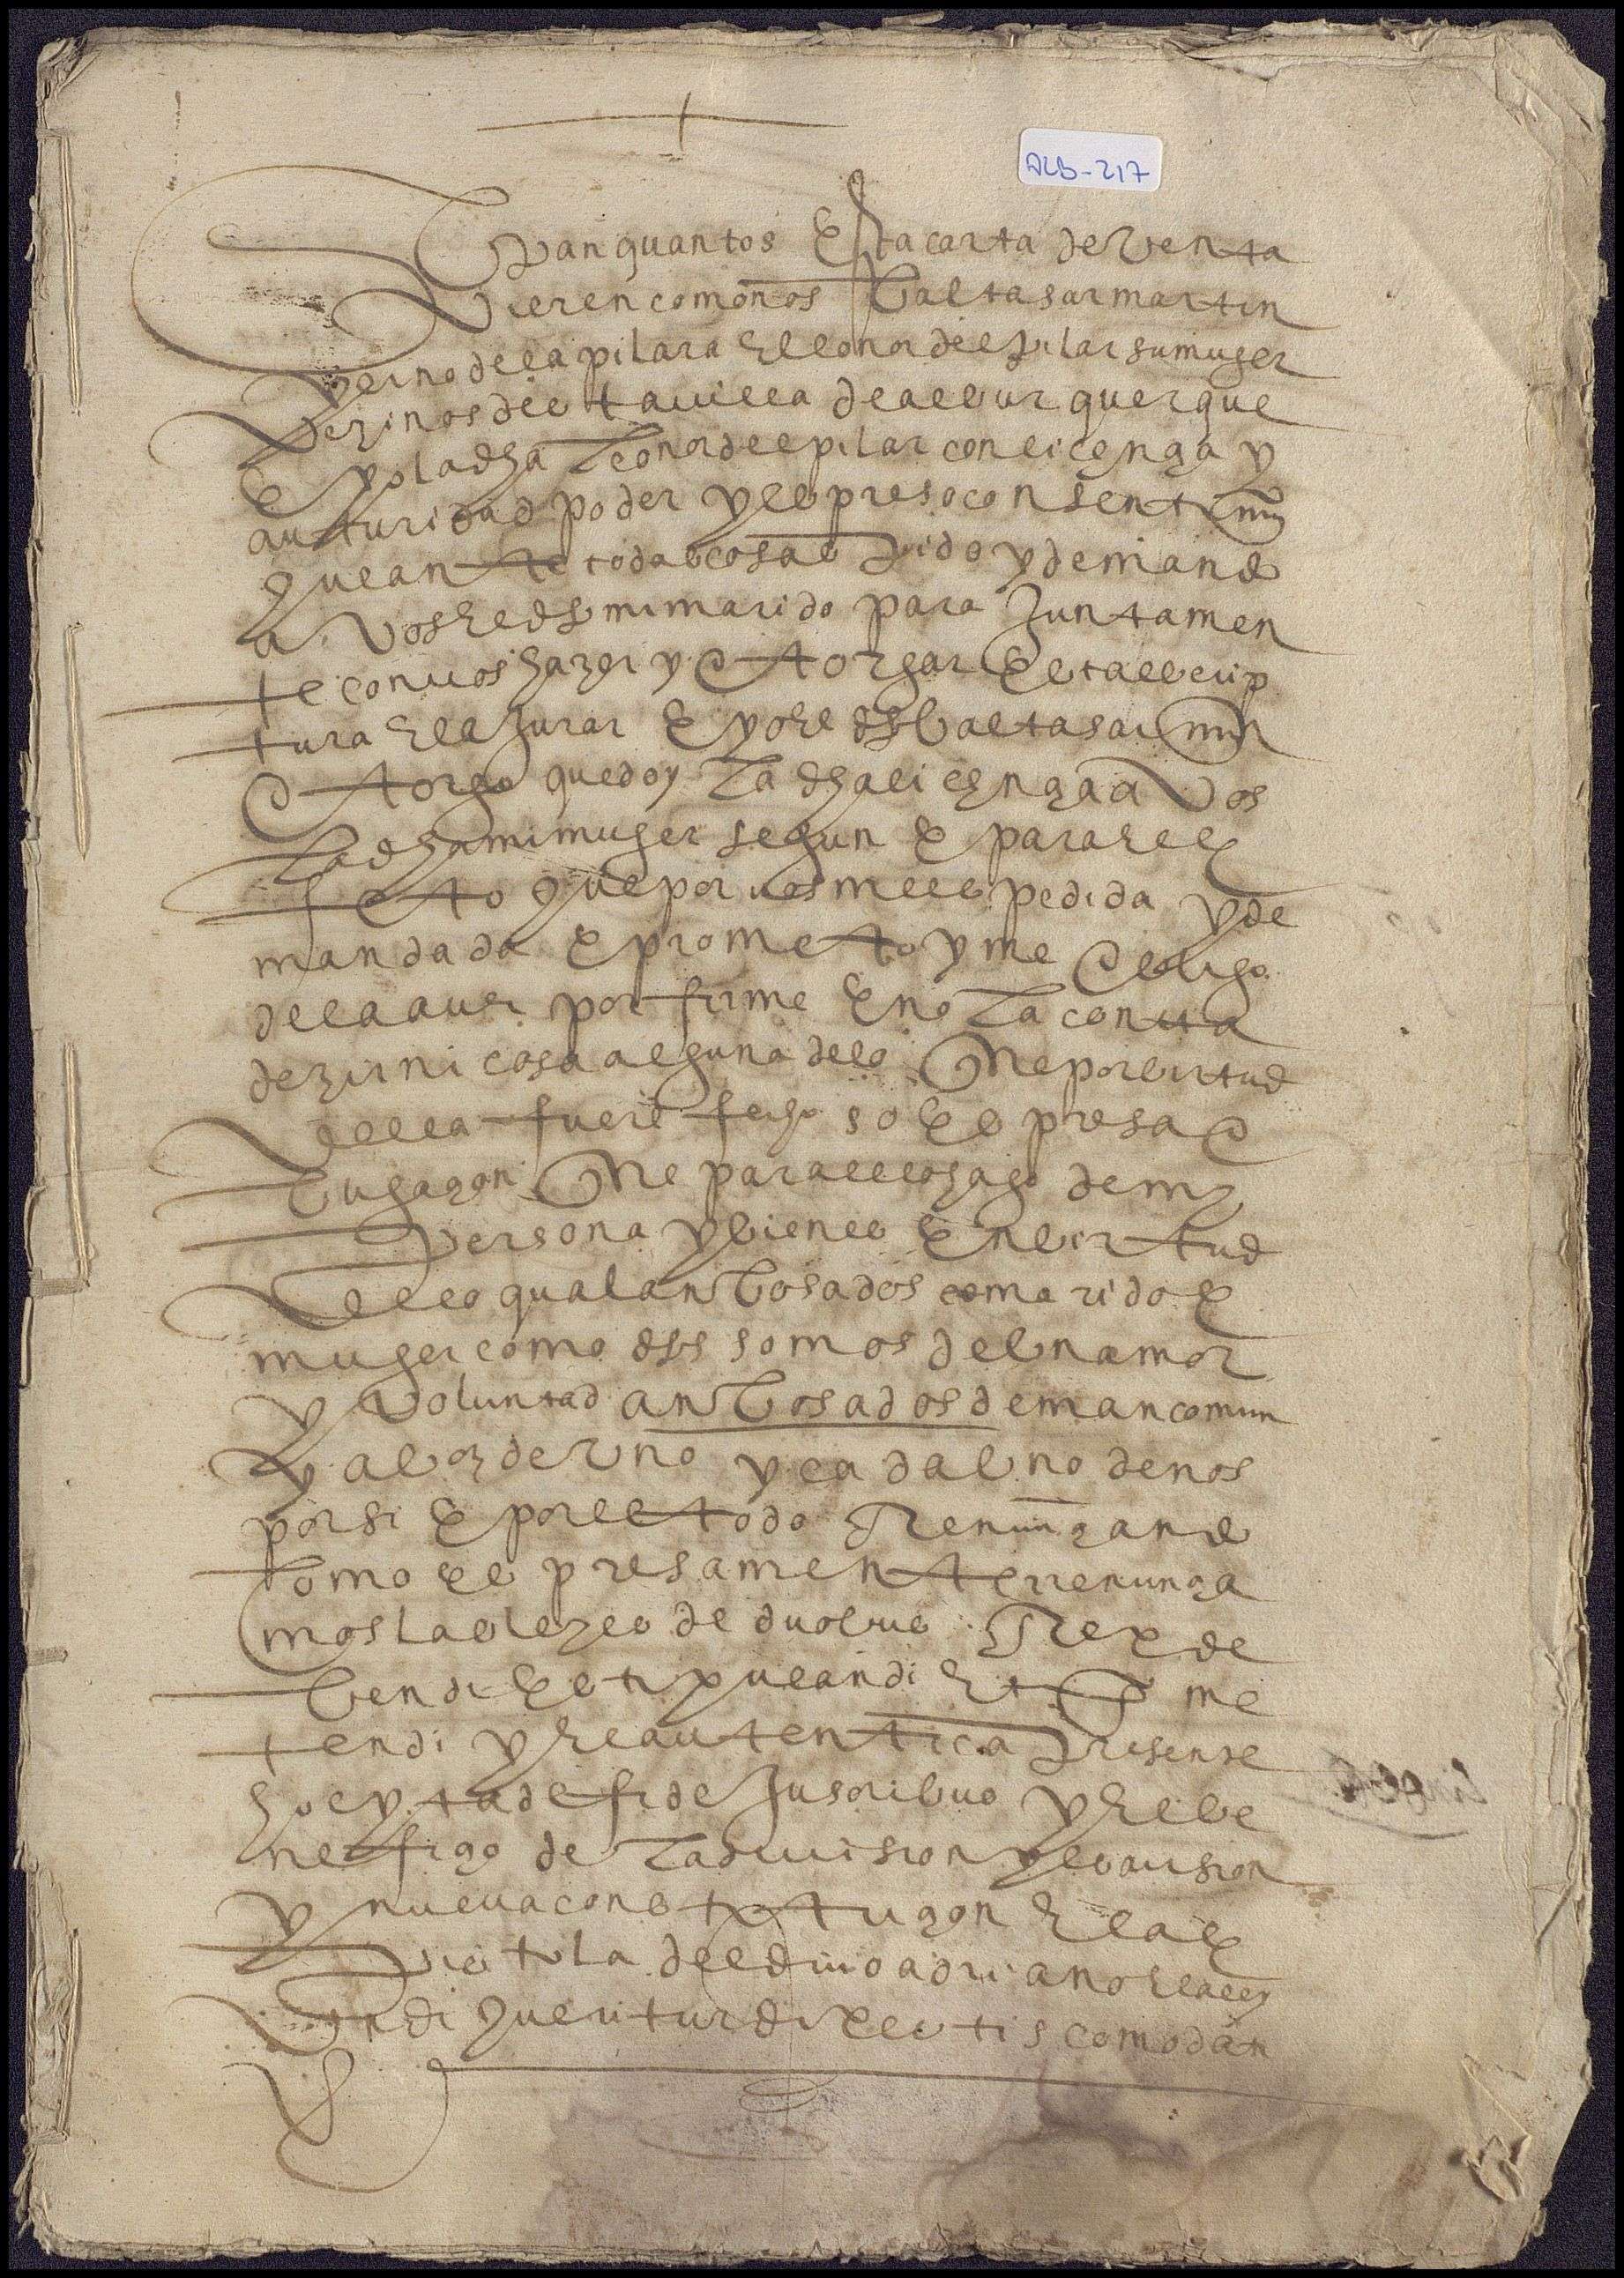 ALB-217
Sepan quantos esta carta de venta
vieren como nos baltasar martin
yerno de la pilara e leonor del pilar su muger
vezinos de esta villa de alburquerque
e yo la dha leonor del pilar con licençia y
auturidad poder y espreso consentimi
que ante todas cosas pido y demando
a vos el dho mi marido para juntamen
te con vos hazer y otorgar esta escrip
tura e la jurar e yo el dho baltasar mrn
otorgo que doy la dha licençia a vos
la dha mi muger segun e para el e
feto que por vos me es pedida y de
mandada e prometo y me obligo
de la aver por firme e no la contra
dezir ni cosa alguna de lo que por virtud
della fuere fecho so espresa o
bligaçion que para ello hago de mi
persona y bienes en virtud
de lo qual anbos a dos como marido e
muger como dhos somos de un amor
y voluntad anbos a dos de mancomun
y a boz de uno y cada uno de nos
por si e por el todo renunçiando
como espresamente renunçia
mos las leyes de duobus rex de
bendi estipulandi et me
tendi y el autentica presente
hoc yta de fide jusoribus y el be
nefiçio de la division y escursion
y nueva constituçion e la e
pistola del divo adriano e la ley
si quentur di como dan